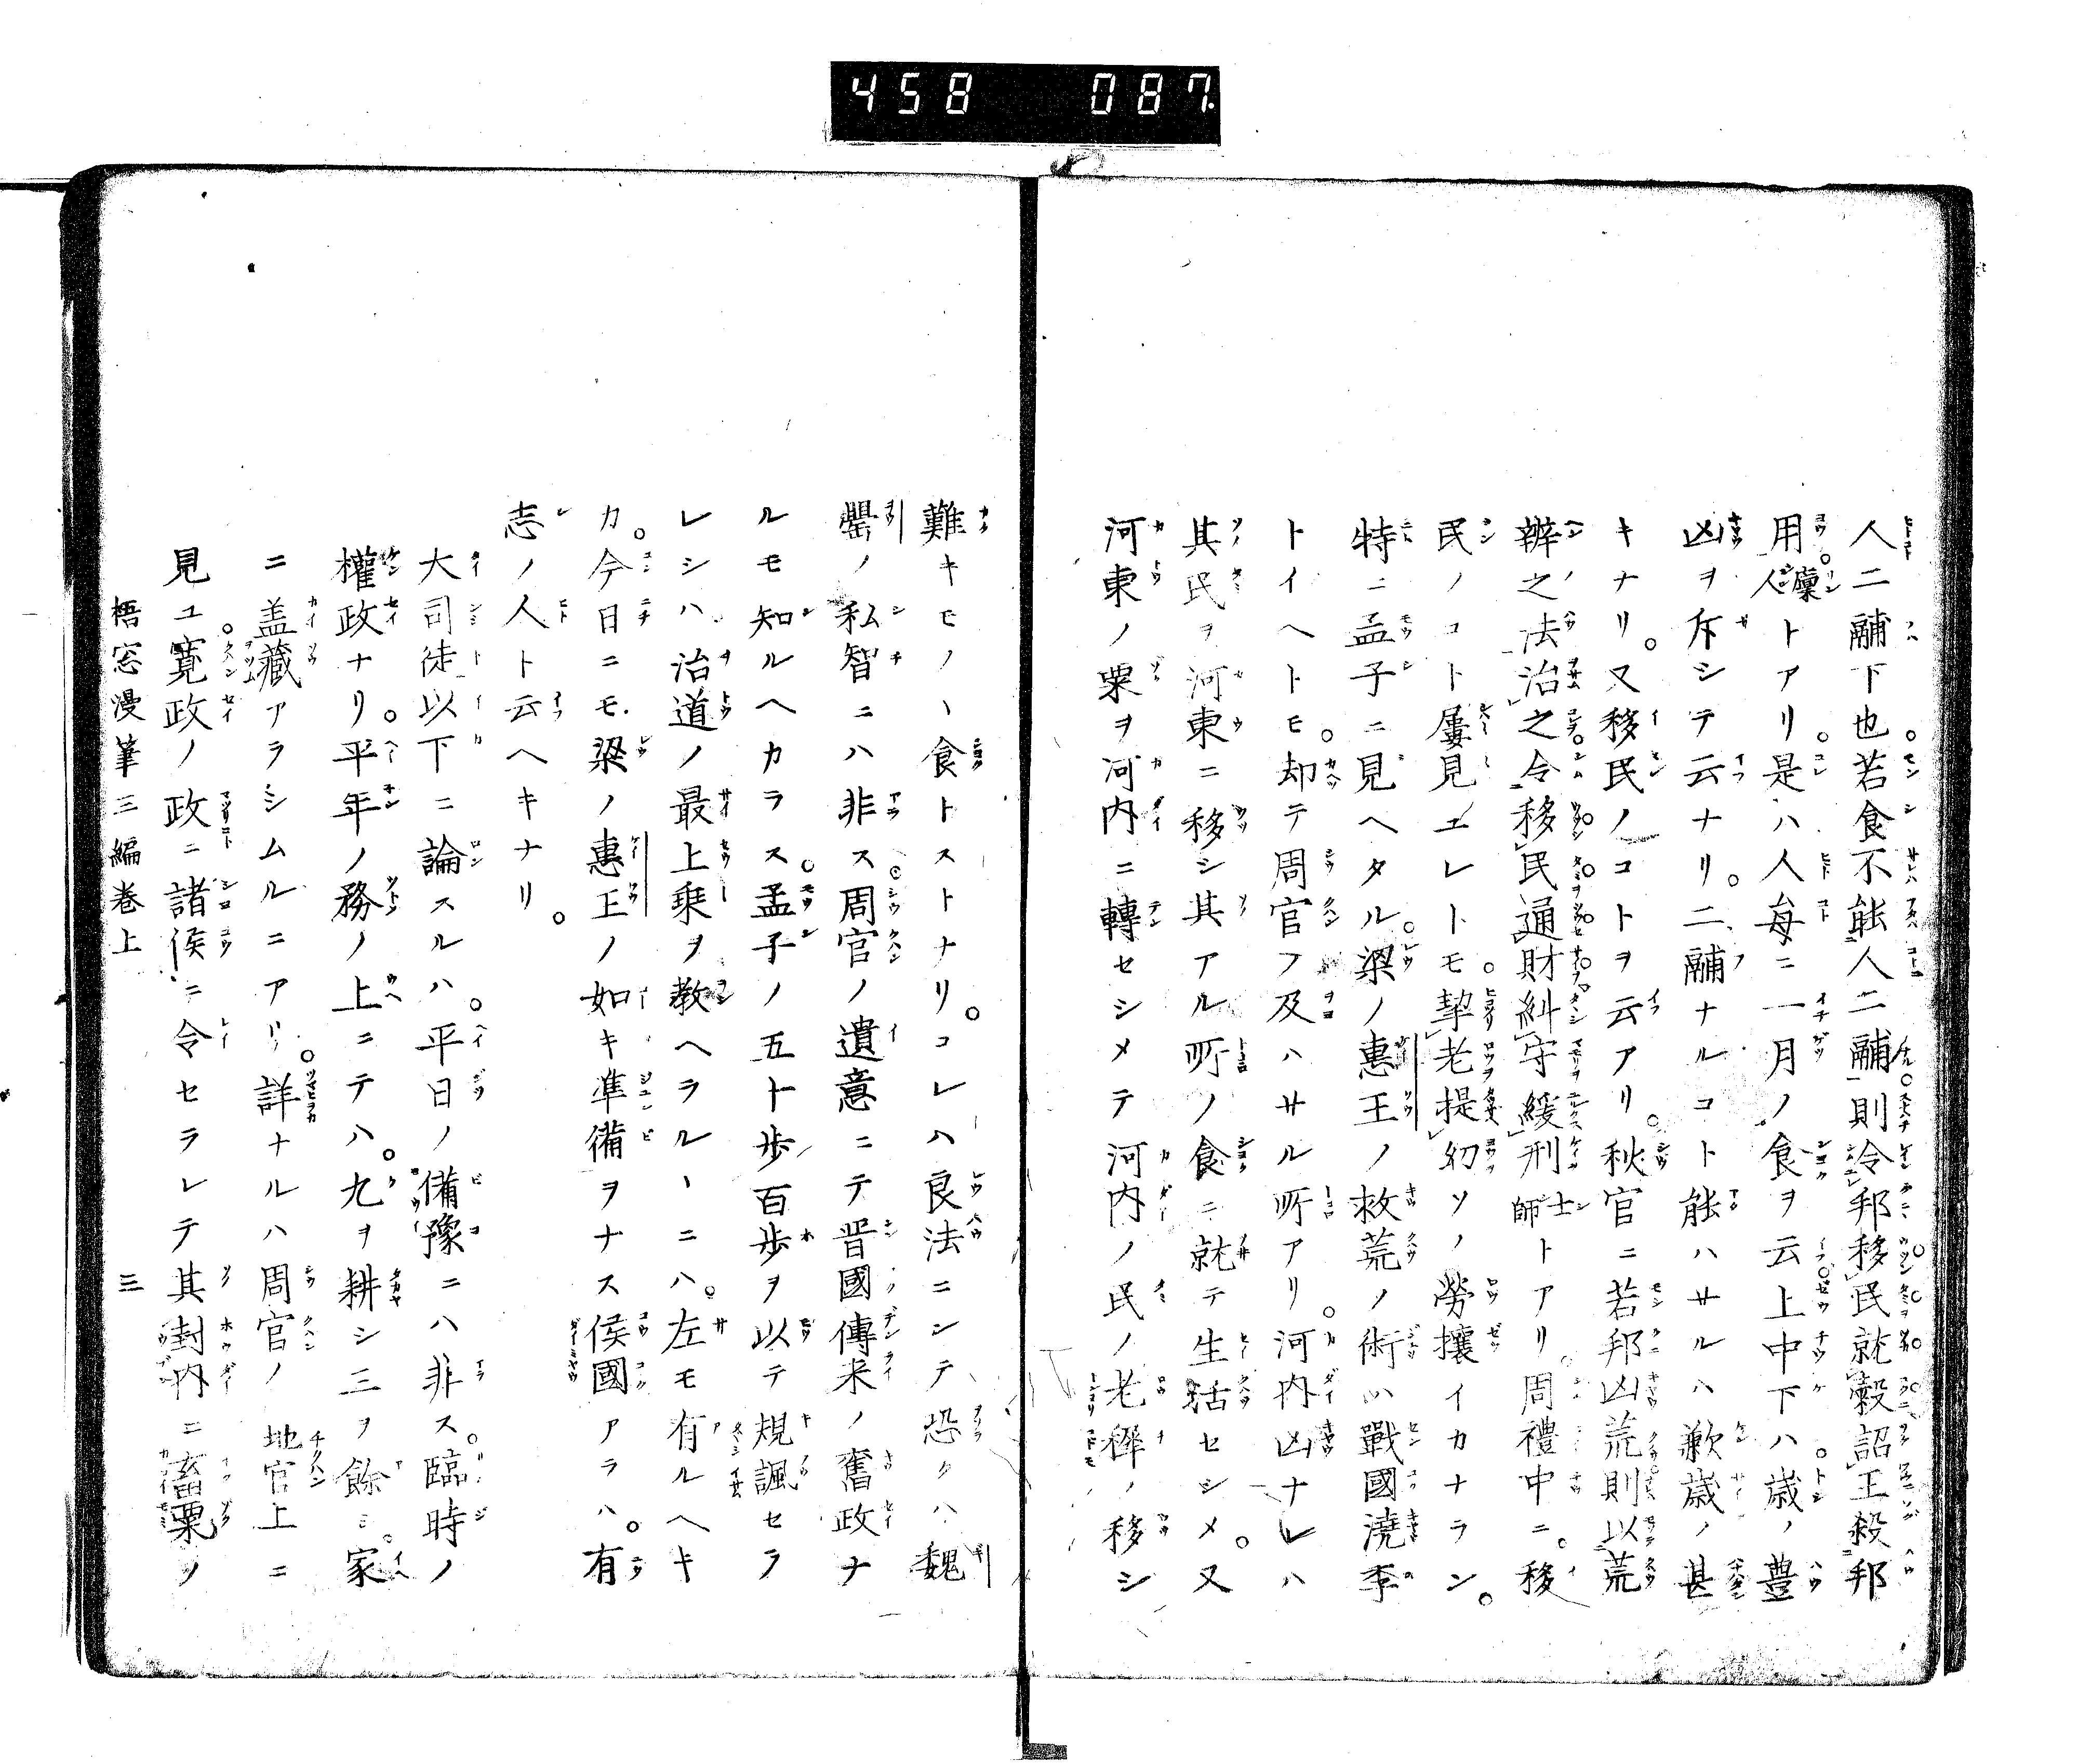 458 087
人二鬴下也若食不能人二鬴則令邦移民就穀詔王殺邦
用廩人トアリ是ハ人每ニ一月ノ食ヲ云上中下ハ歳ノ豊
凶ヲ斥シテ云ナリ二鬴ナルコト能ハサルハ歉歳ノ甚
キナリ。又移民ノコトヲ云アリ。秋官ニ若邦凶荒則以荒
辨之法治之令移民通財糾守緩刑士師トアリ。周禮中ニ。移
民ノコト屢見ユレトモ。挈老提幼ソノ勞攘イカナラン。
特ニ孟子ニ見ヘタル。梁ノ惠王ノ救荒ノ術ハ戰國澆季
トイヘトモ。却テ周官ノ及ハサル所アリ。河内凶ナレハ
其民ヲ河東ニ移シ其アル所ノ食ニ就テ生活セシメ。又
河東ノ粟ヲ河内ニ轉セシメテ河内ノ民ノ老穉ノ移シ
難キモノヽ食トストナリ。コレハ良法ニシテ恐クハ魏
罌ノ私智ニハ非ス周官ノ遺意ニテ晋國傳来ノ舊政ナ
ルモ知ルヘカラス。孟子ノ五十歩百歩ヲ以テ規諷セラ
レシハ治道ノ最上乗ヲ教ヘラルヽニハ。左モ有ルヘキ
カ。今日ニモ梁ノ惠王ノ如キ準備ヲナス侯國アラハ。有
志ノ人ト云ヘキナリ。
大司徒以下ニ論スルハ。平日ノ備豫ニハ非ス。臨時ノ
權政ナリ。平年ノ務ノ上ニテハ。九ヲ耕シ三ヲ餘ミ。家
ニ盖藏アラシムルニアリ。詳ナルハ周官ノ地官上ニ
見ユ寛政ノ政ニ諸侯ニ令セラレテ其封内ニ畜粟ノ
梧窓漫筆三編卷上 三